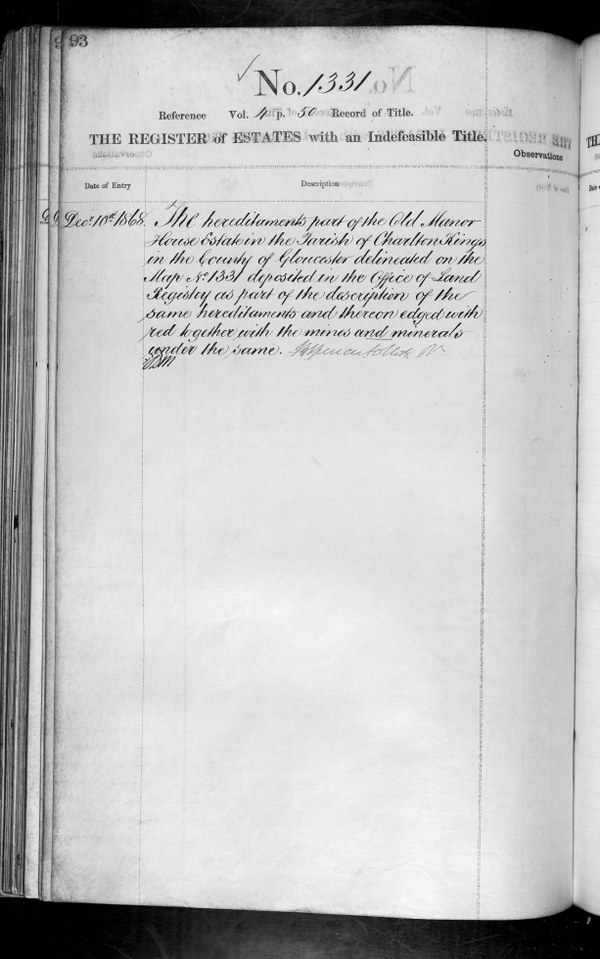 93
No. 1331
Reference Vol. 4 p. 50 Record of Title.
THE REGISTER of ESTATES with an Indefeasible Title.
Observations
Date of Entry
Description
Decr 10th 1868.
The hereditaments part of the Old Manor
House Estate in the Parish of Charlton Kings
in the County of Gloucester delineated on the
Map No 1331 deposited in the Office of Land
Registry as part of the description of the
same hereditaments and thereon edged with
red together with the mines and minerals
under the same.